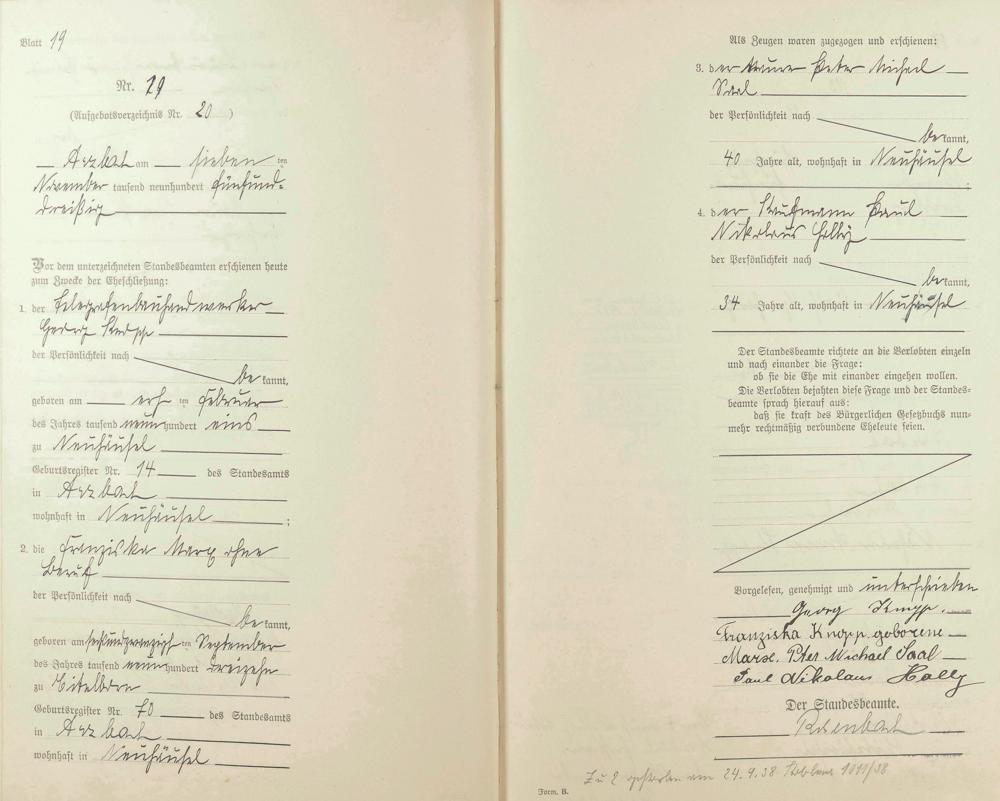 Blatt 19
Nr. 19
(Aufgebotsverzeichnis Nr. 20 )
Arzbach am sieben ten
November tausend neunhundert fünfund-
dreißig
Vor dem unterzeichneten Standesbeamten erschienen heute
zum Zwecke der Eheschließung:
1. der Telegrafenbauhandwerker
Georg Knopp
der Persönlichkeit nach
be kannt,
geboren am ers ten Februar
des Jahres tausend neunhundert eins
zu Neuhäusel
Geburtsregister Nr. 14 des Standesamts
in Arzbach
wohnhaft in Neuhäusel ;
2. die Franziska Marx ohne
Beruf
der Persönlichkeit nach
be kannt,
geboren am sechsundzwanzigs ten September
des Jahres tausend neunhundert dreizehn
zu Eitelborn
Geburtsregister Nr. 70 des Standesamts
in Arzbach
wohnhaft in Neuhäusel
Als Zeugen waren zugezogen und erschienen:
3. der Maurer Peter Michael
Saal
der Persönlichkeit nach
be kannt,
40 Jahre alt, wohnhaft in Neuhäusel
;
4. der Kaufmann Paul
Nikolaus Holly
der Persönlichkeit nach
be kannt,
34 Jahre alt, wohnhaft in Neuhäusel
Der Standesbeamte richtete an die Verlobten einzeln
und nach einander die Frage:
ob sie die Ehe mit einander eingehen wollen.
Die Verlobten bejahten diese Frage und der Standes-
beamte sprach hierauf aus:
daß sie kraft des Bürgerlichen Gesetzbuchs nun-
mehr rechtmäßig verbundene Eheleute seien.
Vorgelesen, genehmigt und unterschrieben
Georg Knopp.
Franziska Knopp geborene
Marx. Peter Michael Saal
Paul Nikolaus Holly
Der Standesbeamte.
Zu 2 gestorben am 24.9.38 Koblenz 1011/38
Form. B.